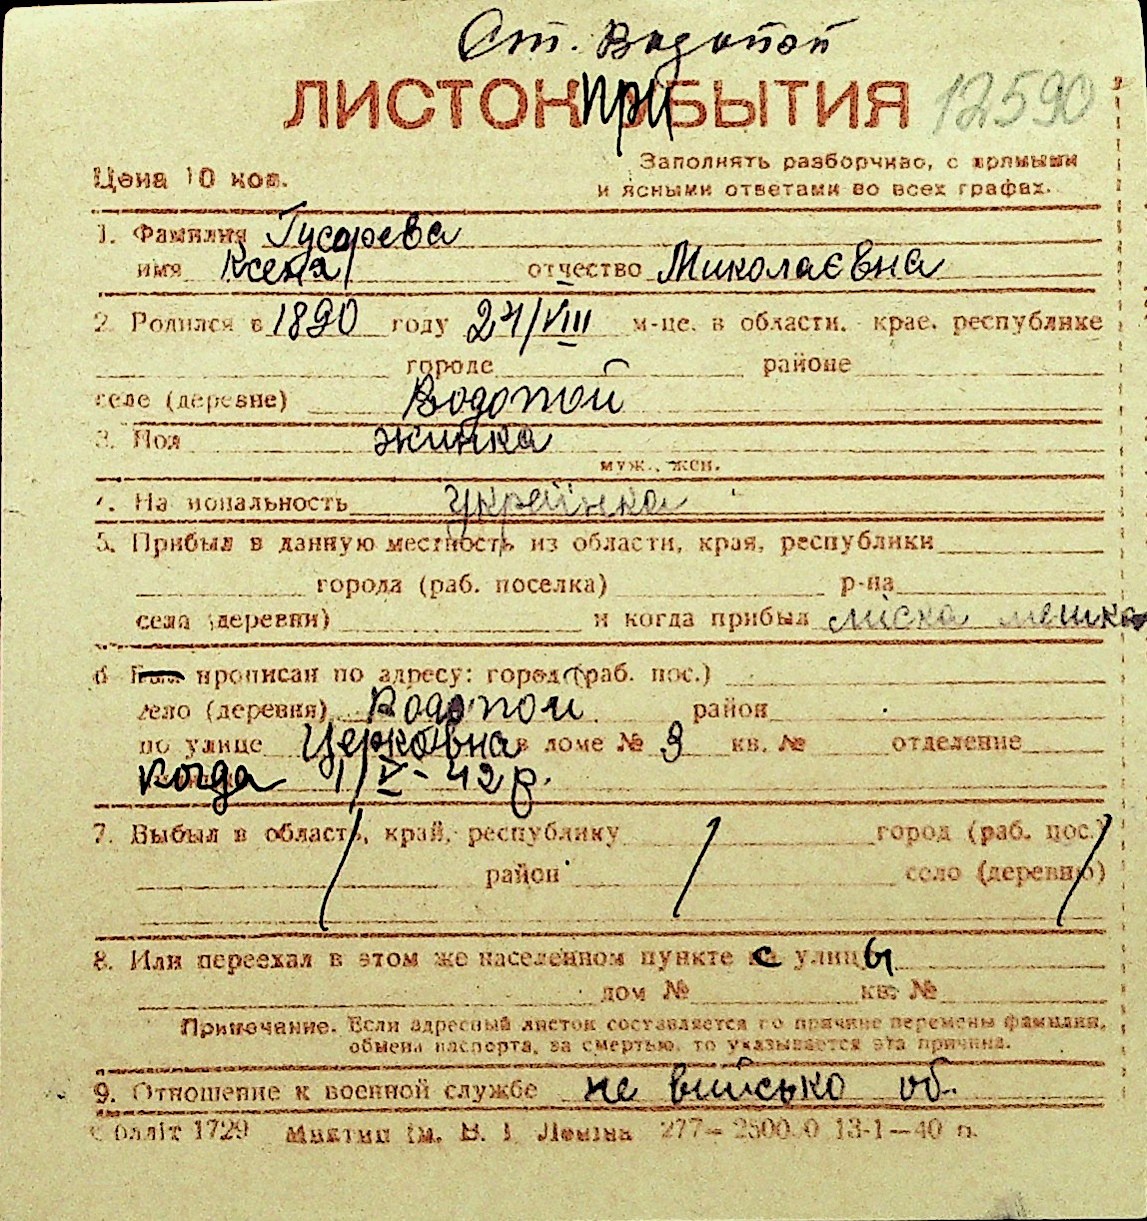 Ст. Водопой
ЛИСТОК ПРИБЫТИЯ 12590
Цена 10 коп. Заполнять разборчиво, с прямыми
и ясными ответами во всех графах.
1. Фамилия Гусарева
имя Ксеня отчество Миколаєвна
2. Родился в 1890 году 24/VIII м-це. в области. крае. республике
городе районе
селе (деревне) Водопой
3. Пол жинка
муж., жен.
4. Национальность українка
5. Прибыл в данную местность из области, края, республики
города (раб. поселка) р-на
села (деревни) и когда прибыл міска мешка
6 прописан по адресу: город (раб. пос.)
село (деревня) Водопой район
по улице Церковна в доме № 3 кв. № отделение
когда 1/V-42 р.
7. Выбыл в область, край, республику город (раб. пос.)
район село (деревню)
8. Или переехал в этом же населенном пункте с улицы
дом № кв. №
Примечание. Если адресный листок составляется по причине перемены фамилии,
обмена паспорта, за смертью, то указывается эта причина.
9. Отношение к военной службе не військо об.
Обліт 1729 Миктип ім. В. І. Леніна 277— 2500.0 13-1—40 п.